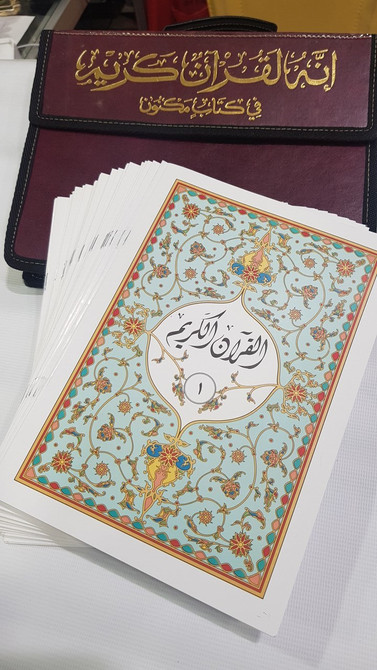 إنه لقرآن كريم
في كتاب مكنون
القرآن الكريم
١